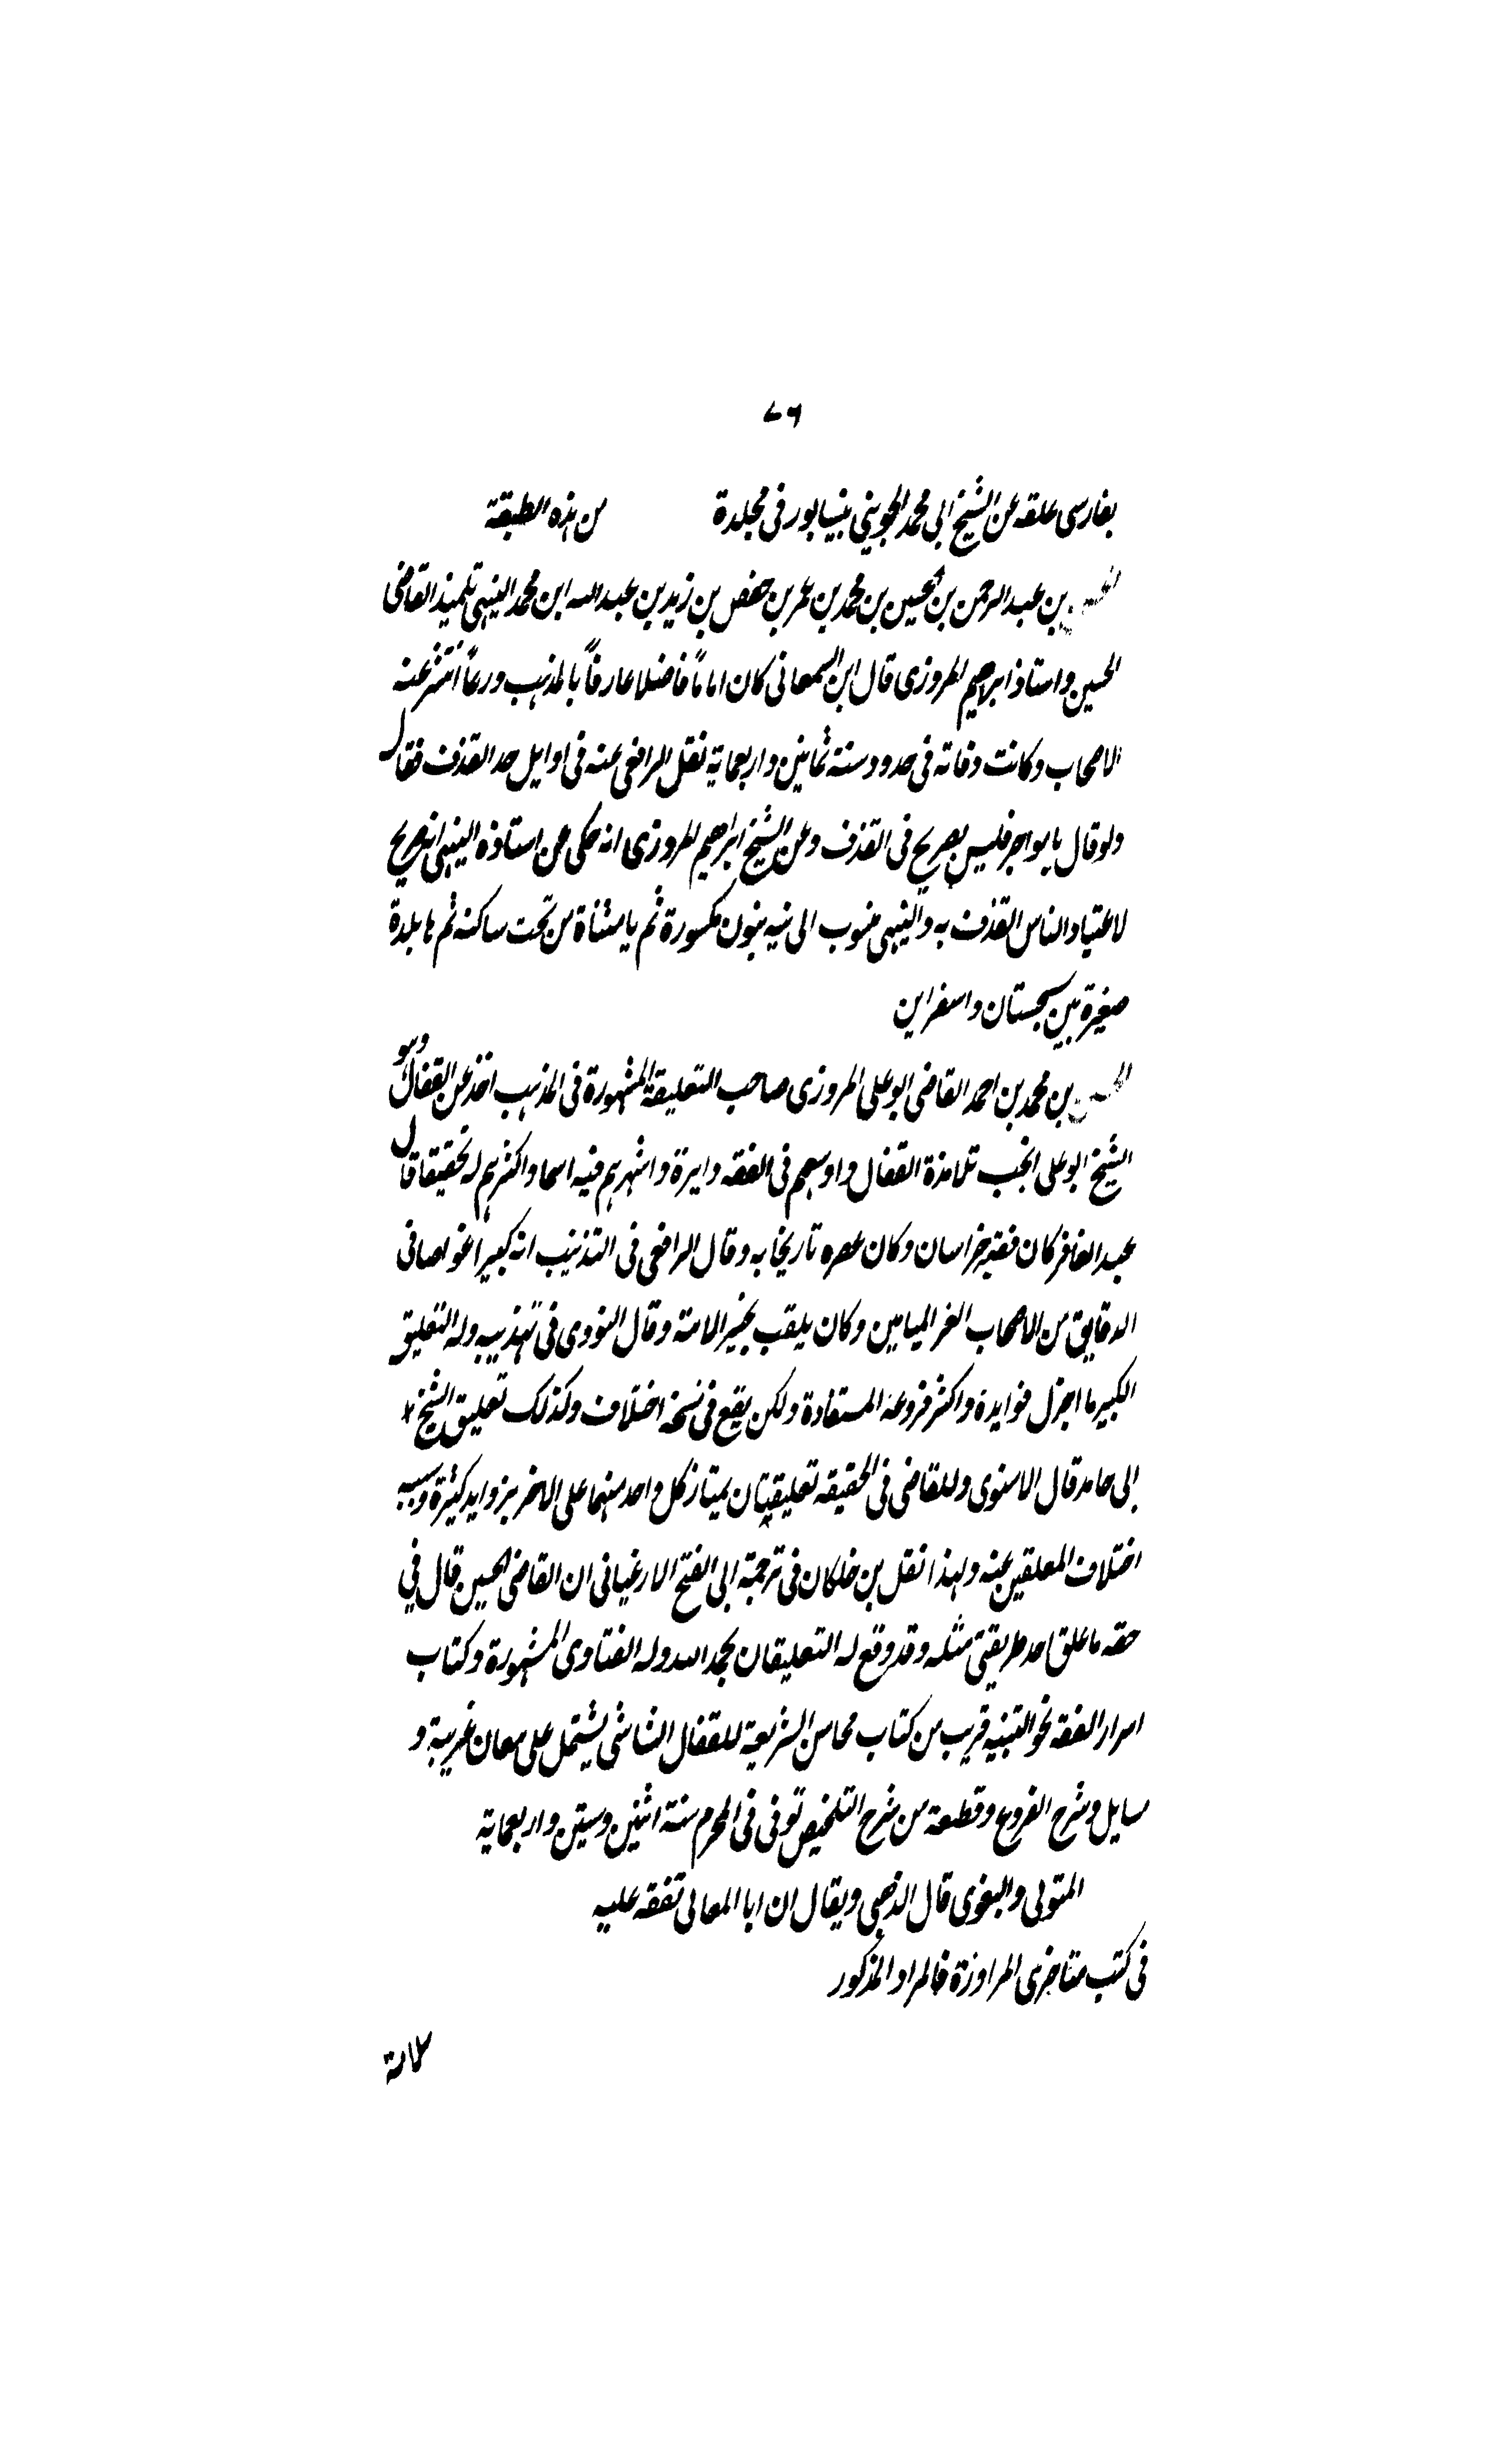 ٧٦
بفارسى علقه عن الشيخ ابى محمد الجوينى بنيسابور فى مجلدة من هذه الطبقة
بن عبد الرحمن بن الحسين بن محمد بن عمر بن حفص بن زيد بن عبد الله ابن محمد النيهى تلميذ القاضى
الحسين واستاذ ابراهيم المروزى قال ابن السمعانى كان اماماً فاضلا عارفاً بالمذهب ورعاً انتشر عنه
الاصحاب وكانت وفاته فى حدود سنة ثمانين واربعماية نقل الرافعى عنه فى اوايل حد القذف فقال
ولو قال يا مواجر فليس بصريح فى القذف وعن الشيخ ابراهيم المروزى انه حكى عن استاذه النيهى انه صريح
لاعتياد الناس القذف به والنيهى منسوب الى نيه بنون مكسورة ثم يا مثناة من تحت ساكنه ثم ها بلدة
صغيرة بين سجستان واسفراين
الحسين بن محمد بن احمد القاضى ابو على المروزى صاحب التعليقة المشهورة فى المذهب اخذ عن القفال وهو
الشيخ ابو على انجب تلامذة القفال واوسعهم فى الفقه دايرة واشهرهم فيه اسما واكثرهم له تحقيقا قال
عبد الغافر كان فقيه خراسان وكان عصره تاريخا به وقال الرافعى فى التذنيب انه كبيرا غواصا فى
الدقايق من الاصحاب الغر الميامين وكان يلقب بحبر الامة وقال النووى فى تهذيبه وله التعليق
الكبير ما اجزل فوايده واكثر فروعه المستفادة ولكن يقع فى نسخه اختلاف وكذلك تعليق الشيخ
ابى حامد قال الاسنوى وللقاضى فى الحقيقه تعليقتان يمتاز كل واحد منهما على الاخر بزوايد كثيرة وسببه
اختلاف المعلقين عنه ولهذا نقل بن خلكان فى ترجمة ابى الفتح الارغيانى ان القاضى الحسين قال فى
حقه ما علق احد طريقتى مثله وقد وقع له التعليقان بحمد الله وله الفتاوى المشهورة وكتاب
اسرار الفقه نحو التنبيه قريب من كتاب محاسن الشريعة للقفال الشاشى يشتمل على معان غريبة و
مسايل وشرح الفروع وقطعة من شرح التلخيص توفى فى المحرم سنة اثنين وستين واربعماية
المتولى والبغوى قال الذهبى ويقال ان ابا المعالى تفقه عليه
فى كتب متاخرى المراوزة فالمراد المذكور